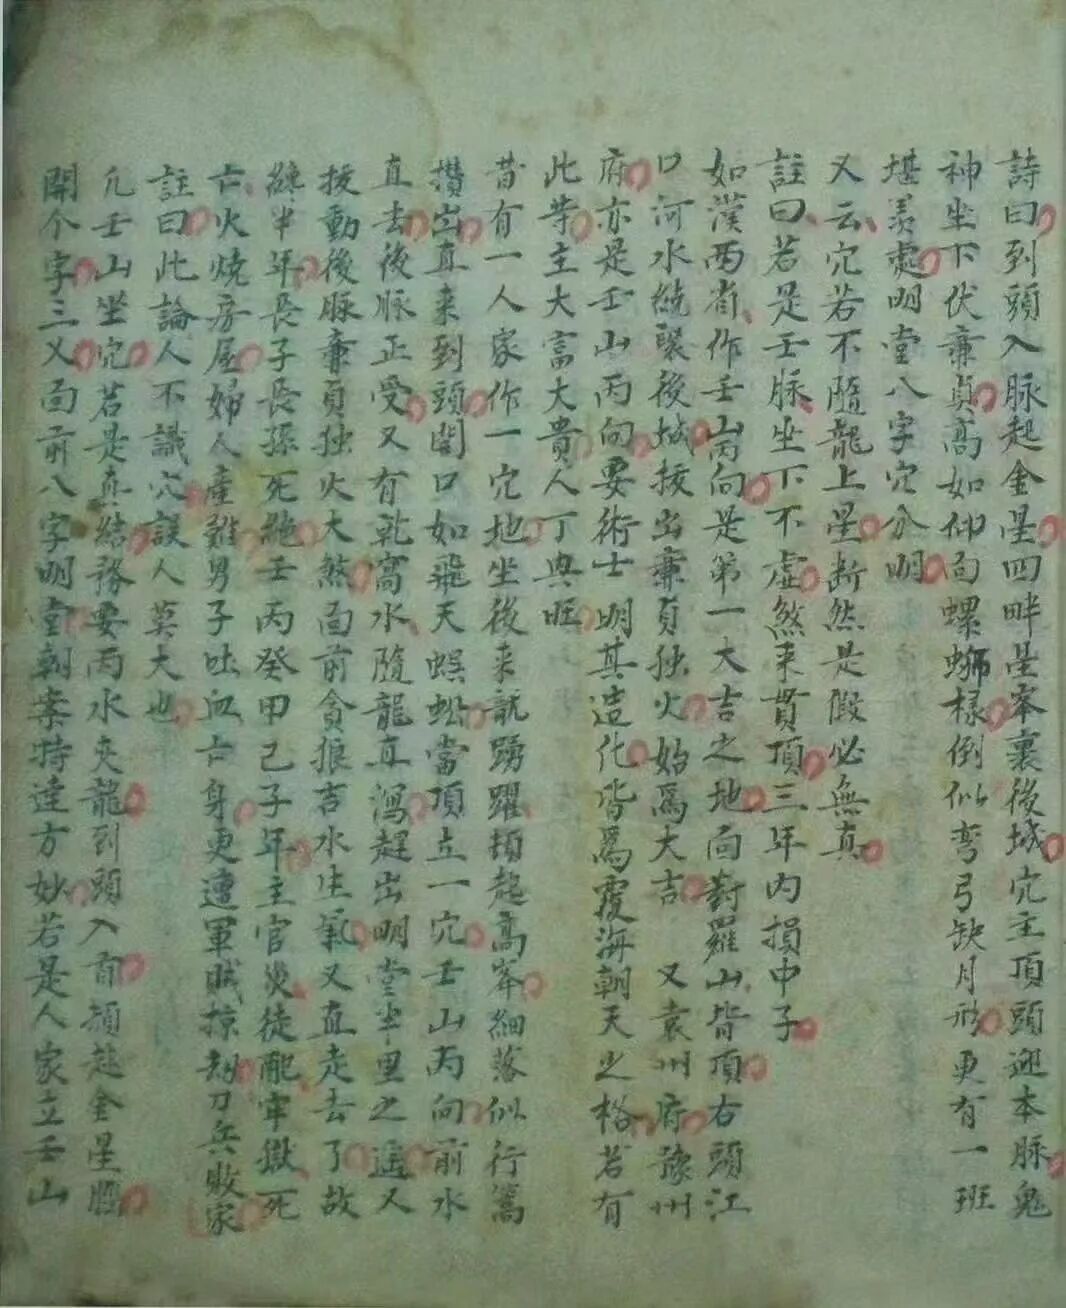 詩曰到頭入脉起金星四畔星峯裏後城穴主頂頭迎本脉鬼
神坐下伏亷貞高如仰面螺螄樣倒似弯弓缺月形更有一班
堪羡處明堂八字穴分明
又云穴若不隨龍上星断然是假必無真
註曰若是壬脉坐下不虚煞来貫頂三年内損中子
如漢西省作壬山丙向是第一大吉之地面對羅山皆頂右頭江
口河水繞褁後城接出亷貞独火始爲大吉 又袁州府豫州
府亦是壬山丙向要術士明其造化皆爲覆海朝天之格若有
此等主大富大貴人丁興旺
昔有一人家作一穴地坐後来龍踴躍頓起高峯細落似行篙
攢出直来到頭開口如飛天蜈蚣當頂立一穴壬山丙向前水
直去後脉正受又有乾窩水隨龍真瀉趕出明堂半里之遥又
接動後脉亷貞独火大煞面前貪狼吉水生氣又直走去了故
繞半年長子長孫死絶壬丙癸甲己子年主官災徒配牢獄死
亡火燒房屋婦人產難男子吐血亡身更遭軍賊掠刼刀兵敗家
註曰此論人不識穴誤人莫大也
凢壬山坐穴若是真結務要丙水夾龍到頭入首頓起金星腦
開个字三义面前八字明堂朝案特達方妙若是人家立壬山